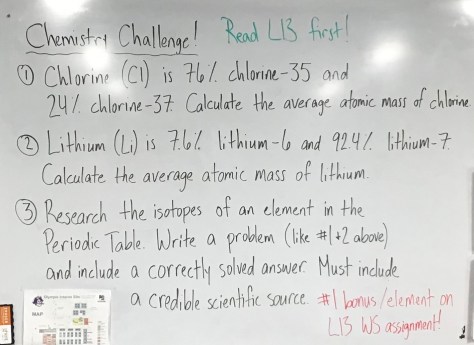 Chemistry Challenge! Read L13 first!
① Chlorine (Cl) is 76% chlorine-35 and
24% chlorine-37. Calculate the average atomic mass of chlorine.
② Lithium (Li) is 7.6% lithium-6 and 92.4% lithium-7.
Calculate the average atomic mass of lithium.
③ Research the isotopes of an element in the
Periodic Table. Write a problem (like #1+2 above)
and include a correctly solved answer. Must include
a credible scientific source. #1 bonus/element on
L13 WS assignment!
MAP